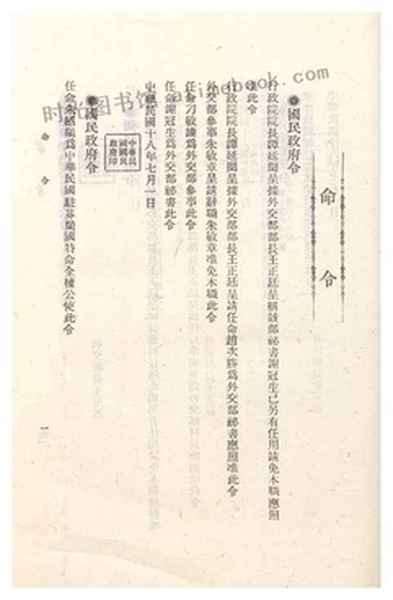 命令
國民政府令
行政院院長譚延闓呈據外交部部長王正廷呈稱該部祕書謝冠生已另有任用請免本職應照
准此令
行政院院長譚延闓呈據外交部部長王正廷呈請任命趙次勝爲外交部祕書應照准此令
外交部參事朱敏章呈請辭職朱敏章准免本職此令
任命刁敏謙爲外交部參事此令
任命謝冠生爲外交部祕書此令
中華民國十八年七月一日
中華民國國民政府印
國民政府令
任命朱紹陽爲中華民國駐芬蘭國特命全權公使此令
命令
一
时光图书馆
book.com